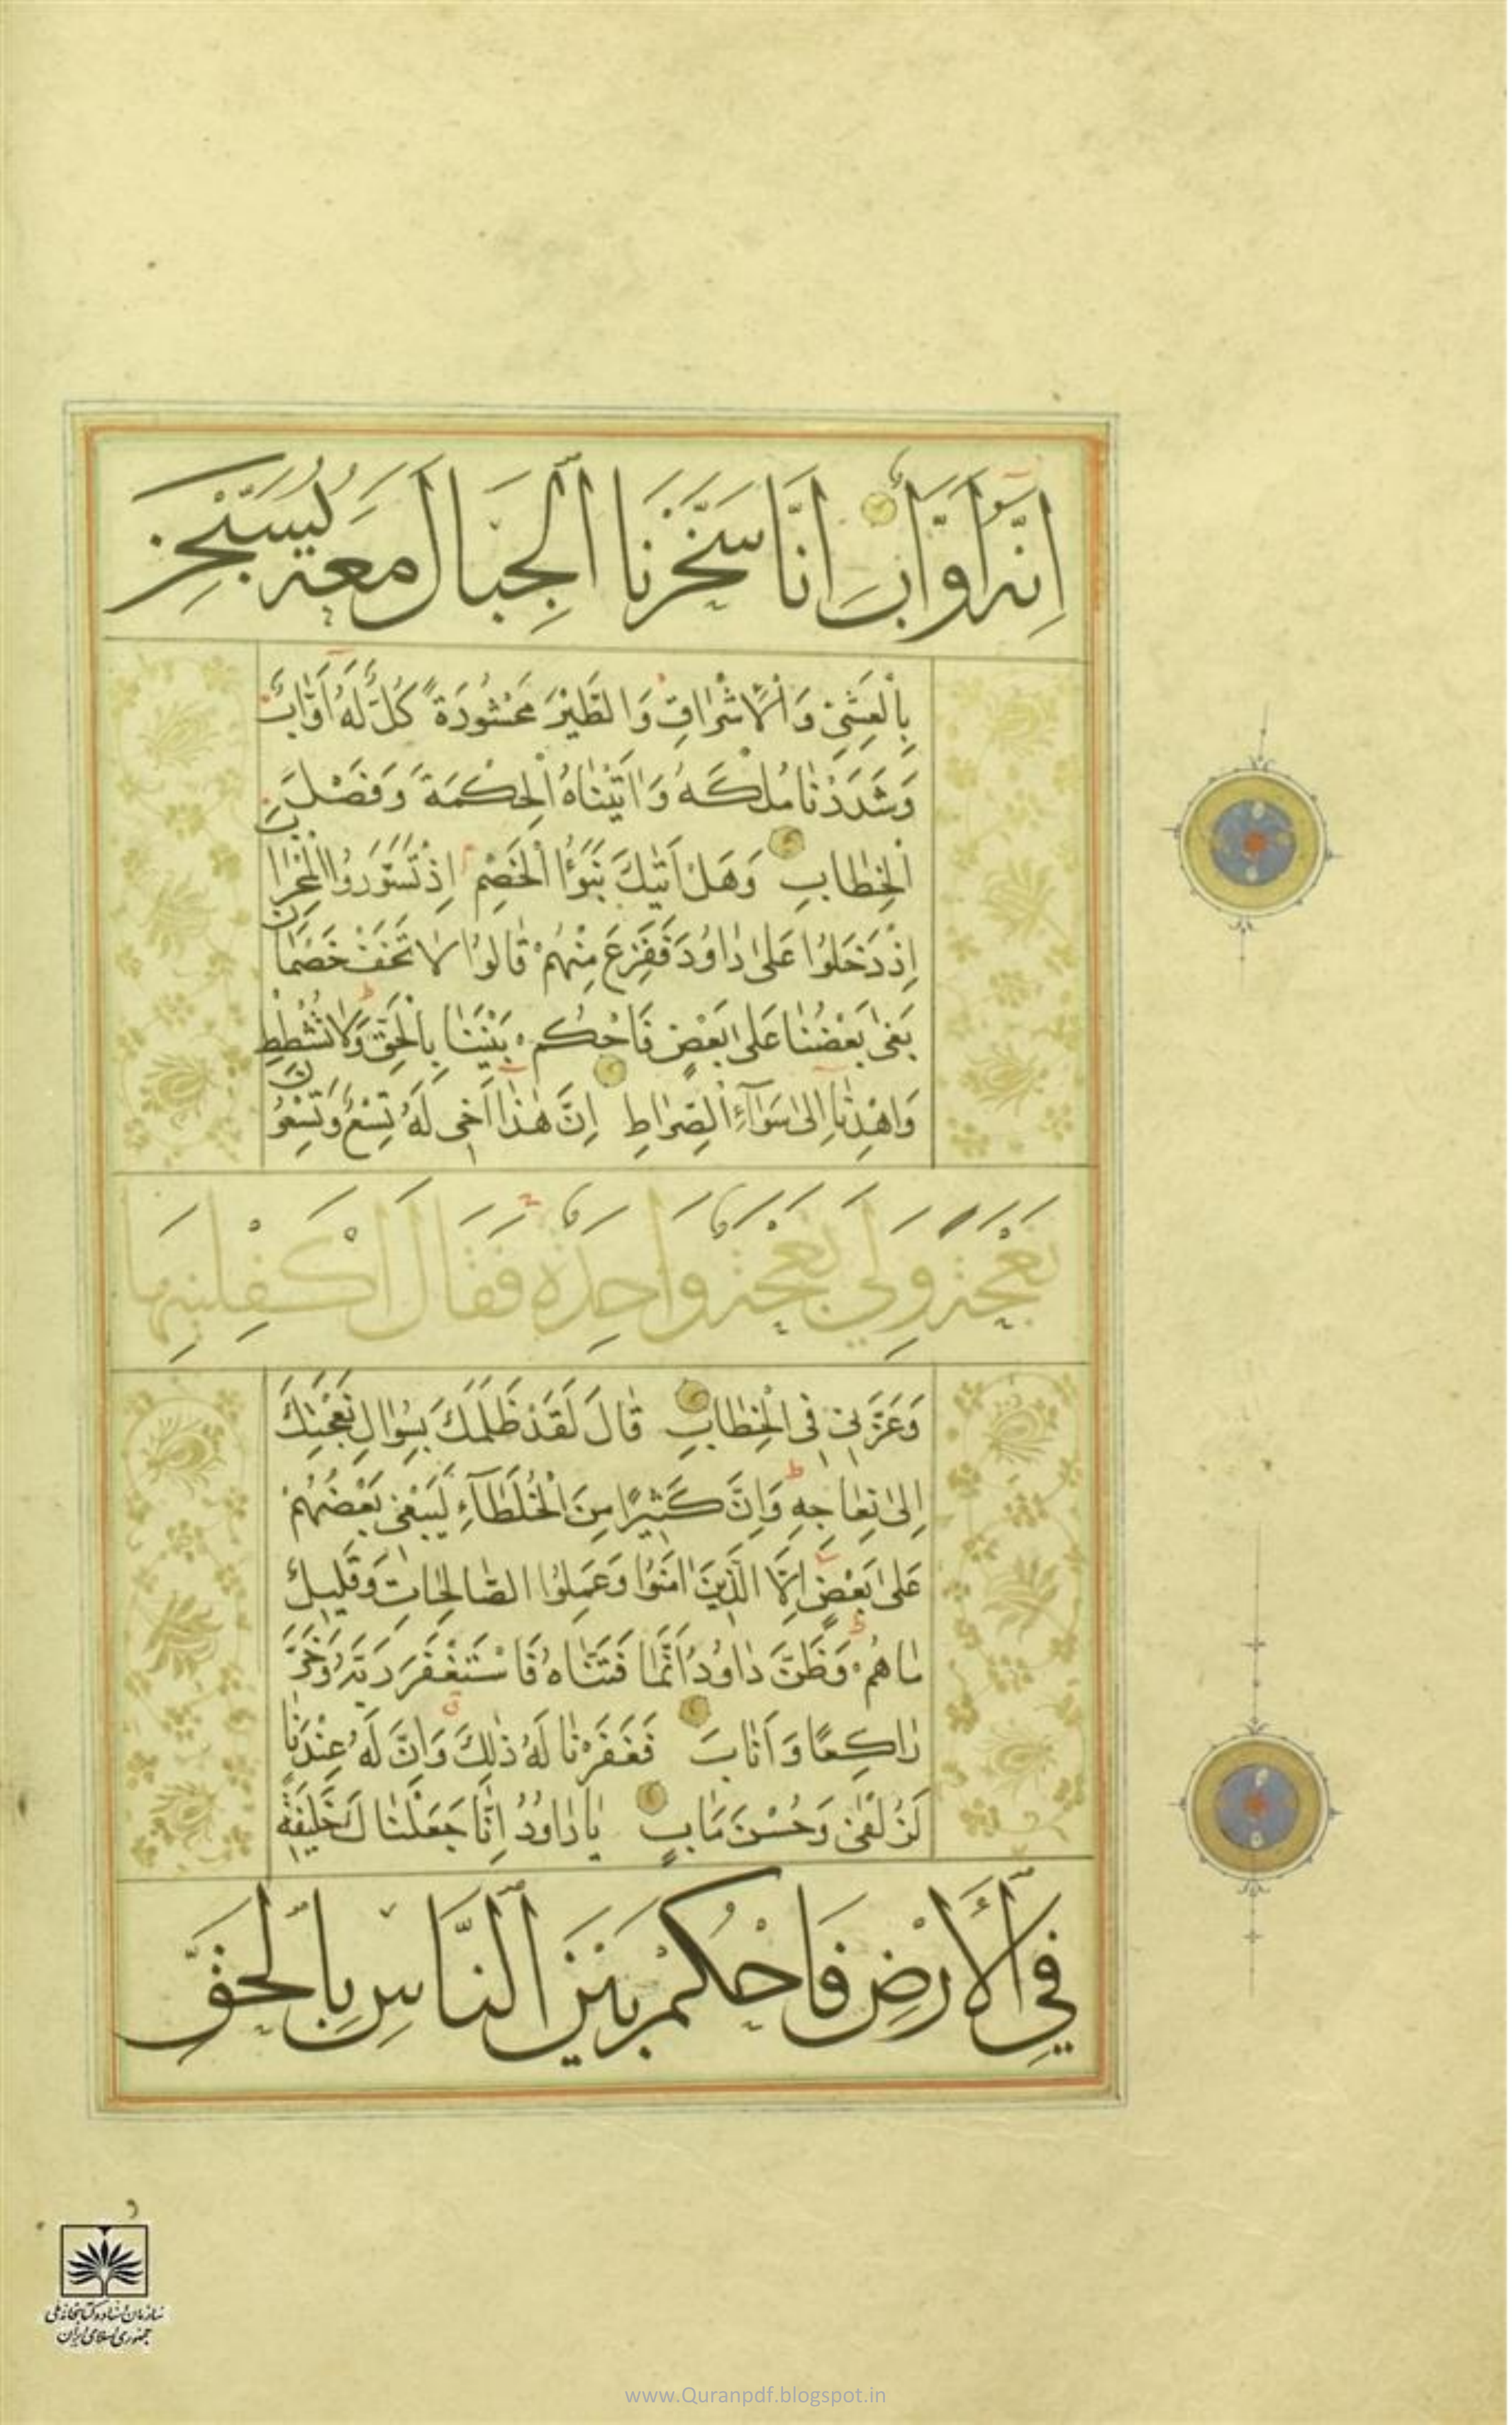 اِنَّهُ اَوَّابٌ اِنَّا سَخَّرْنَا الْجِبَالَ مَعَهُ يُسَبِّحْنَ
بِالْعَشِيِّ وَالْاِشْرَاقِ وَالطَّيْرَ مَحْشُورَةً كُلٌّ لَهُ اَوَّابٌ
وَشَدَدْنَا مُلْكَهُ وَاٰتَيْنَاهُ الْحِكْمَةَ وَفَصْلَ
الْخِطَابِ وَهَلْ اَتٰيكَ نَبَؤُا الْخَصْمِ اِذْ تَسَوَّرُوا الْمِحْرَابَ
اِذْ دَخَلُوا عَلٰى دَاوُدَ فَفَزِعَ مِنْهُمْ قَالُوا لَا تَخَفْ خَصْمَانِ
بَغٰى بَعْضُنَا عَلٰى بَعْضٍ فَاحْكُمْ بَيْنَنَا بِالْحَقِّ وَلَا تُشْطِطْ
وَاهْدِنَا اِلٰى سَوَآءِ الصِّرَاطِ اِنَّ هٰذَا اَخٖى لَهُ تِسْعٌ وَتِسْعُونَ
نَعْجَةً وَلِيَ نَعْجَةٌ وَاحِدَةٌ فَقَالَ اَكْفِلْنِيهَا
وَعَزَّنٖى فِى الْخِطَابِ قَالَ لَقَدْ ظَلَمَكَ بِسُؤَالِ نَعْجَتِكَ
اِلٰى نِعَاجِهٖ وَاِنَّ كَثٖيرًا مِنَ الْخُلَطَآءِ لَيَبْغٖى بَعْضُهُمْ
عَلٰى بَعْضٍ اِلَّا الَّذٖينَ اٰمَنُوا وَعَمِلُوا الصَّالِحَاتِ وَقَلٖيلٌ
مَا هُمْ وَظَنَّ دَاوُدُ اَنَّمَا فَتَنَّاهُ فَاسْتَغْفَرَ رَبَّهُ وَخَرَّ
رَاكِعًا وَاَنَابَ فَغَفَرْنَا لَهُ ذٰلِكَ وَاِنَّ لَهُ عِنْدَنَا
لَزُلْفٰى وَحُسْنَ مَاٰبٍ يَا دَاوُدُ اِنَّا جَعَلْنَاكَ خَلٖيفَةً
فِي الْاَرْضِ فَاحْكُمْ بَيْنَ النَّاسِ بِالْحَقِّ
سازمان اسناد و کتابخانه ملی
جمهوری اسلامی ایران
www.Quranpdf.blogspot.in